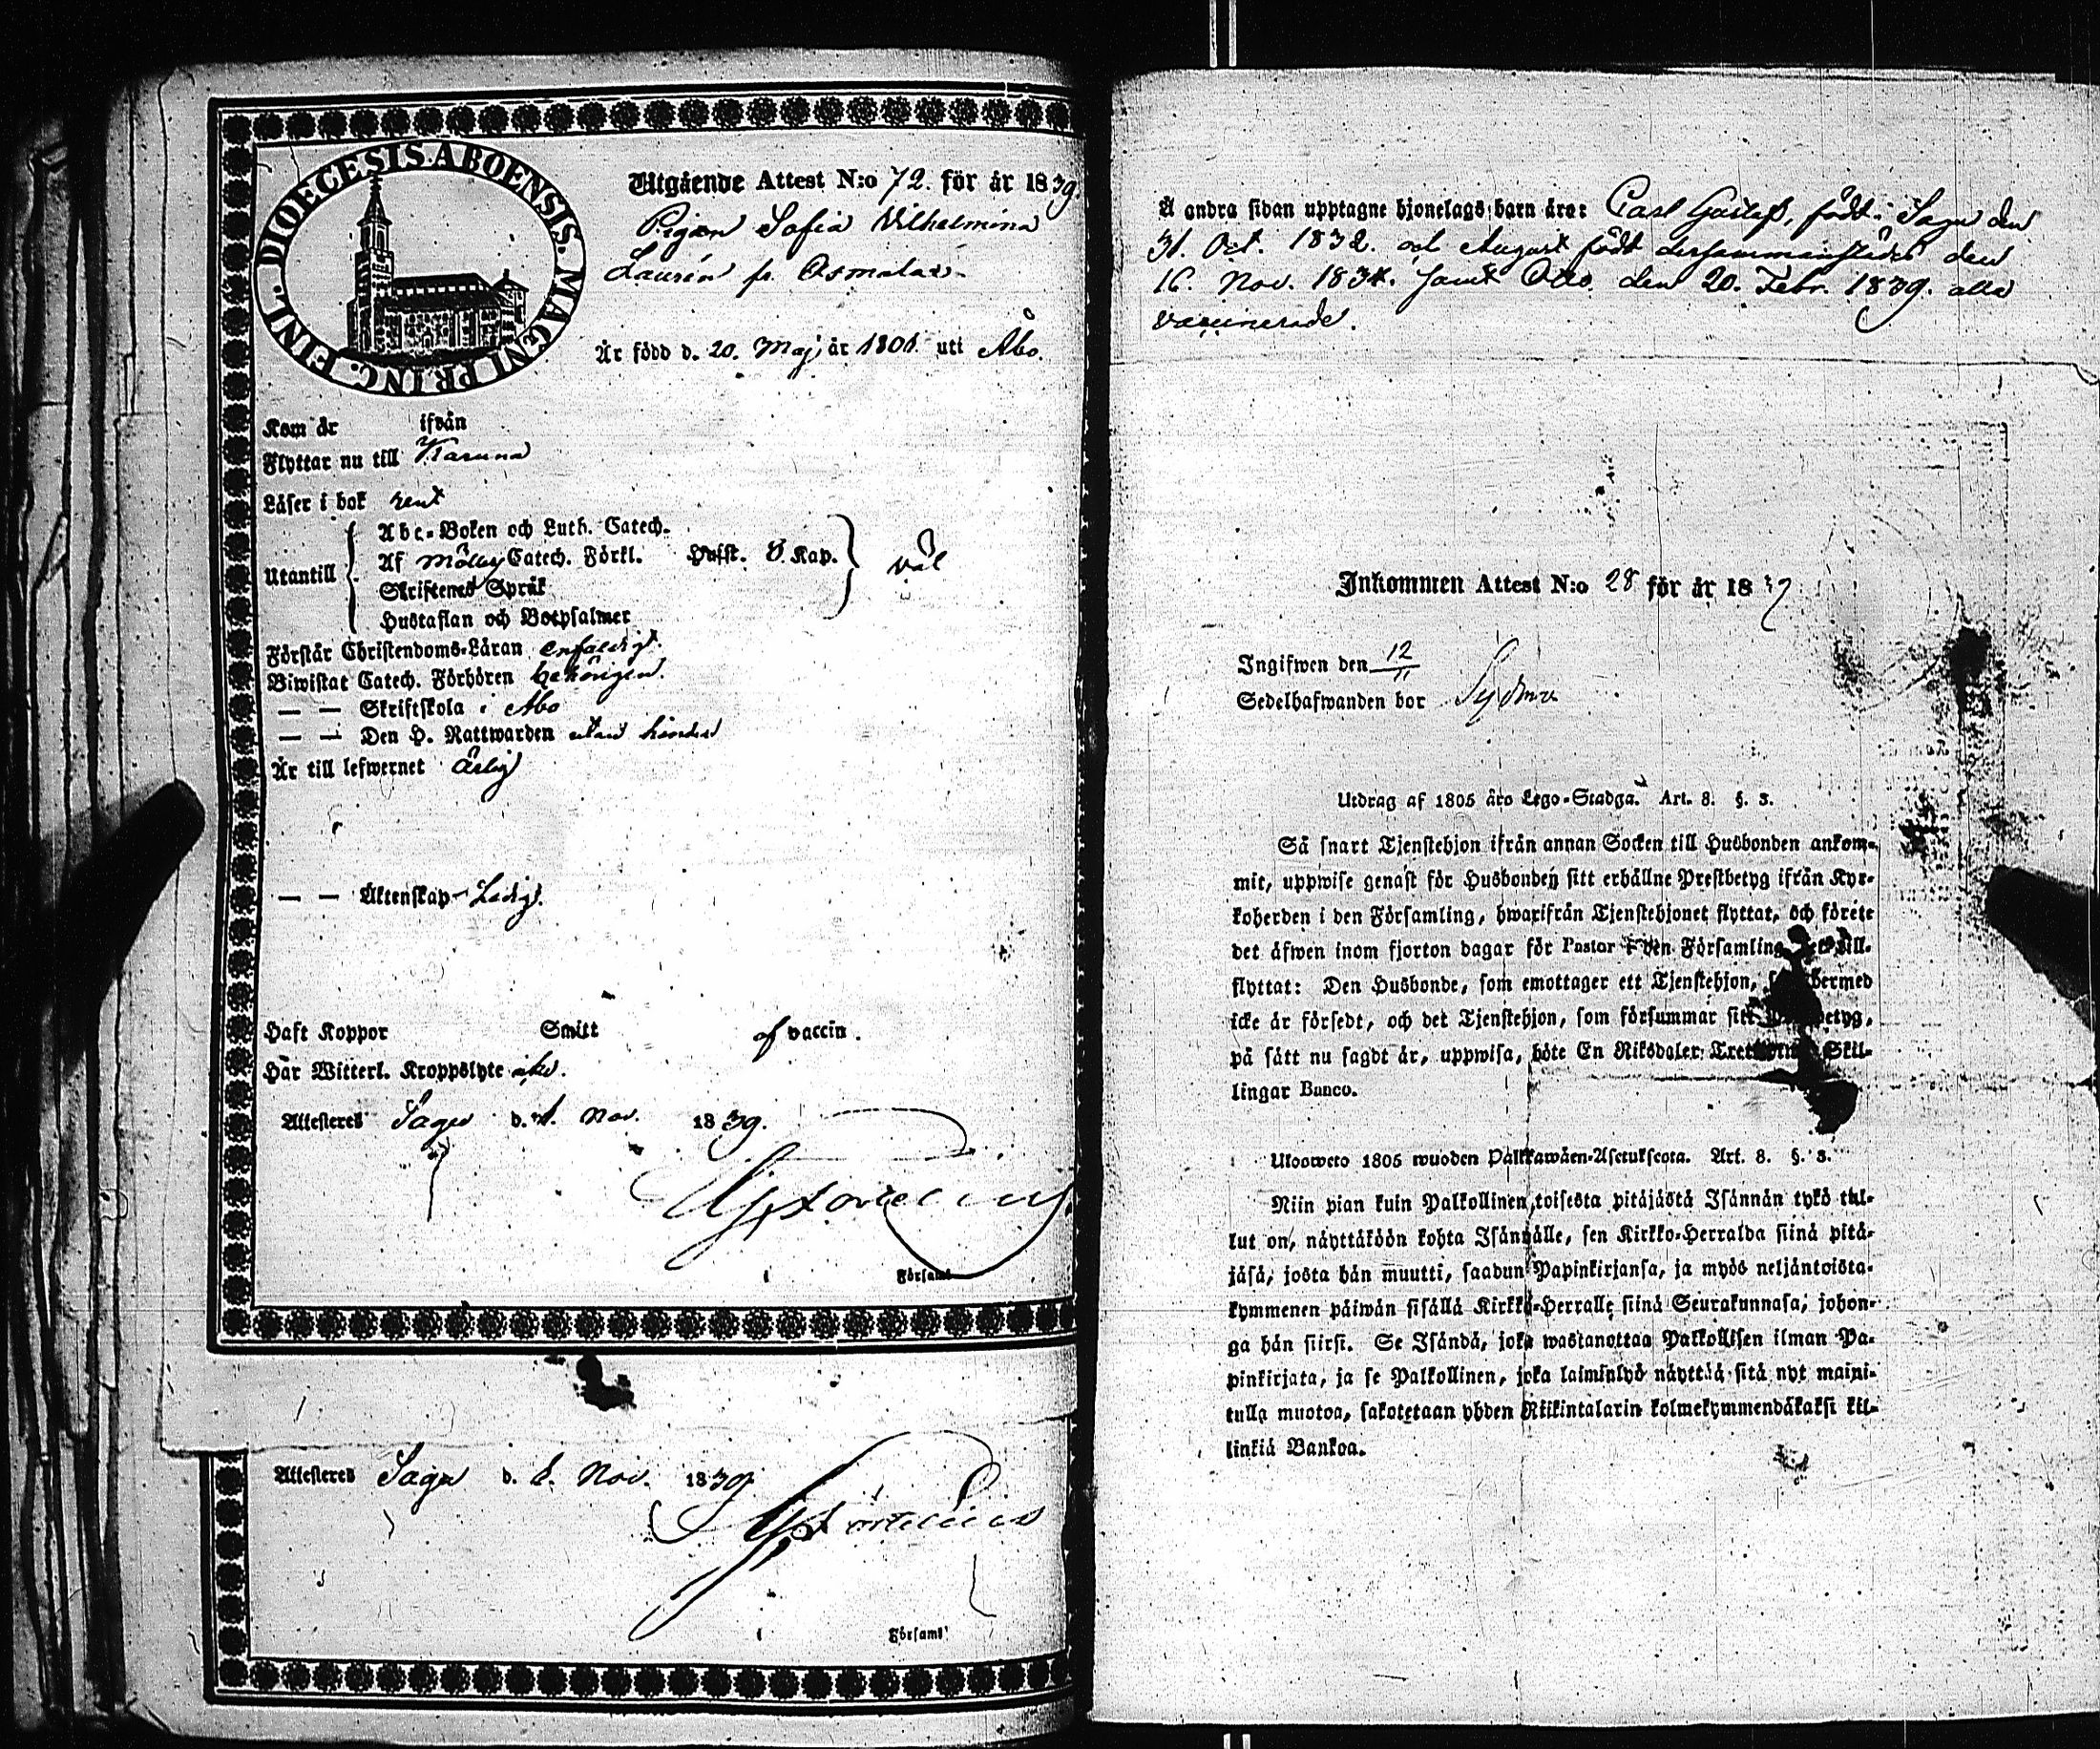 DIOECESIS ABOENSIS. MAGNI PRINC. FINL.
Utgående Attest N:o 72. för år 1839
Pigan Sofia Wilhelmina
Laurén fr.
Är född d. 20. Maj år 1801. uti Åbo.
Kom år ifrån
Flyttar nu till Karuna
Läser i bok rent
Utantill
Abc-Boken och Luth. Catech.
Af Catech. Förkl. Hust. Kap.
Skriftenes Språk
Hustaflan och Botpsalmer
väl
Förstår Christendoms-Läran enfaldigt.
Biwistat Catech. Förhören behörigen.
— — Skriftskola i Åbo
— — Den H. Nattwarden utan hinder
Är till lefwernet ärlig
— — Äktenskap Ledig.
Haft Koppor Smitt af vaccin.
Har Witterl. Kroppslyte icke.
Attesteres Sagu d. Nov. 1839.
i Församl
Attesteres Sagu d. Nov. 1839
i Församl
Å andra sidan upptagne hjonelags barn äro: Carl Gustaf, född i Sagu den
31. Oct. 1832. och August född dersammanstädes den
16. Nov. 1834. samt Otto den 20. Febr. 1839. alla
vaccinerade.
Inkommen Attest N:o 28 för år 1839
Ingifwen den 12/11
Sedelhafwanden bor
Utdrag af 1805 års Lego-Stadga. Art. 8. §. 3.
Så snart Tjenstehjon ifrån annan Socken till Husbonden ankom-
mit, uppwise genast för Husbonden sitt erhållne Prestbetyg ifrån Kyr-
koherden i den Församling, hwarifrån Tjenstehjonet flyttat, och förete
det äfwen inom fjorton dagar för Pastor i den Församling, till-
flyttat: Den Husbonde, som emottager ett Tjenstehjon, dermed
icke är försedt, och det Tjenstehjon, som försummar sitt
på sätt nu sagdt är, uppwisa, böte En Riksdaler Skil-
lingar Banco.
Uloosweto 1805 wuoden Palkkawäen-Asetuksesta. Art. 8. §. 3.
Niin pian kuin Palkollinen toisesta pitäjästä Isännän tykö tul-
lut on, näyttäköön kohta Isännälle, sen Kirkko-Herralda siinä pitä-
jäsä, josta hän muutti, saadun Papinkirjansa, ja myös neljäntoista-
kymmenen päiwän sisällä Kirkko-Herralle siinä Seurakunnasa, johon-
ga hän siirsi. Se Isändä, joka wastanottaa Palkollisen ilman Pa-
pinkirjata, ja se Palkollinen, joka laiminlyö näyttää sitä nyt maini-
tulla muotoa, sakotetaan yhden Riikintalarin kolmekymmendäkaksi kil-
linkiä Bankoa.